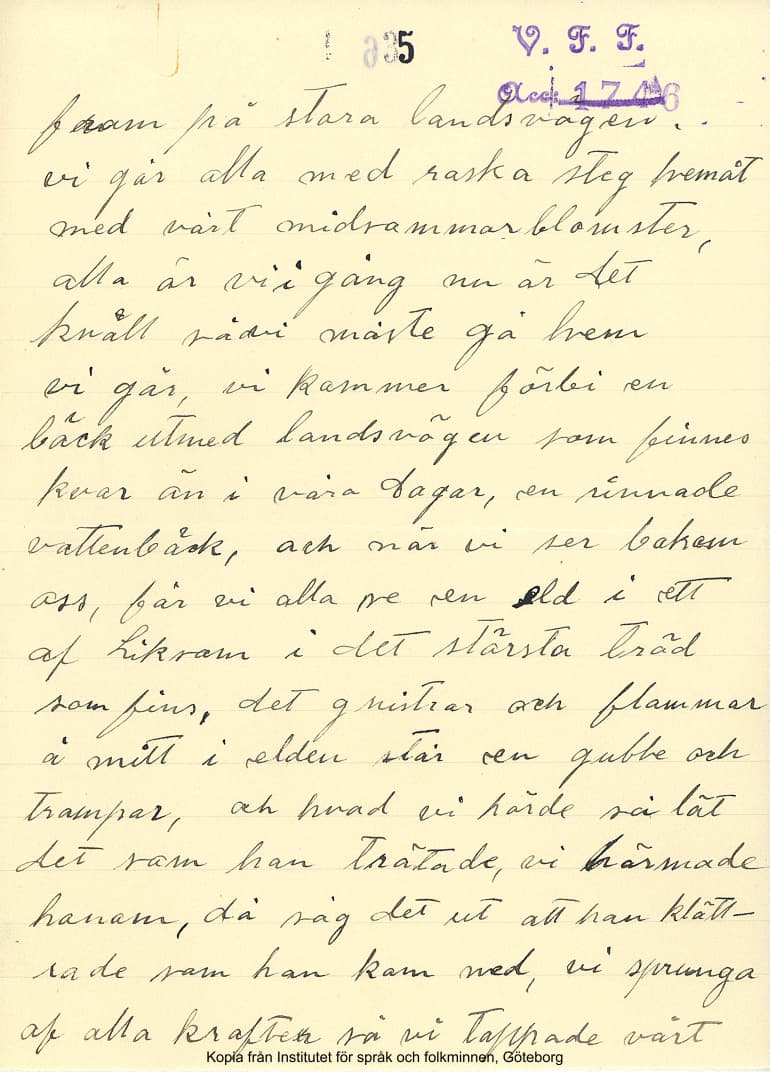 5
V. F. F.
Acc. 1746
fram på stora landsvägen.
vi går alla med raska steg hemåt
med vårt midsammarblomster,
alla är vi i gång nu är det
kväll så vi måste gå hem
vi går, vi kammer förbi en
bäck utmed landsvägen som finnes
kvar än i våra Dagar, en rinnade
vattenbäck, ach när vi ser bakom
oss, får vi alla se en eld i ett
af Liksam i det största träd
som fins, det gnistrar och flammar
å mitt i elden står en gubbe och
trampar, och hvad vi hörde så lät
det sam han trätade, vi härmade
hanam, då såg det ut att han klätt-
rade sam han kam ned, vi sprunga
af alla krafter så vi tappade vårt
Kopia från Institutet för språk och folkminnen, Göteborg